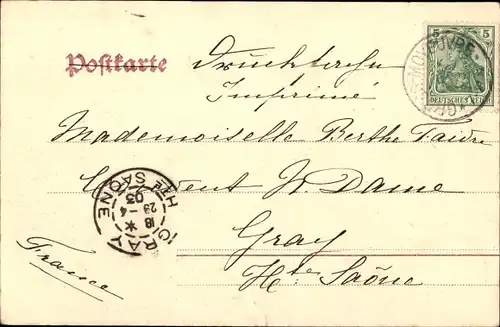 Postkarte
Drucksache
Imprimé
5 5
DEUTSCHES REICH
Mademoiselle Berthe
Couvent N. Dame
Gray
Hte Saône
France
GRAY
Hte SAÔNE
18 *
23 - 4
03